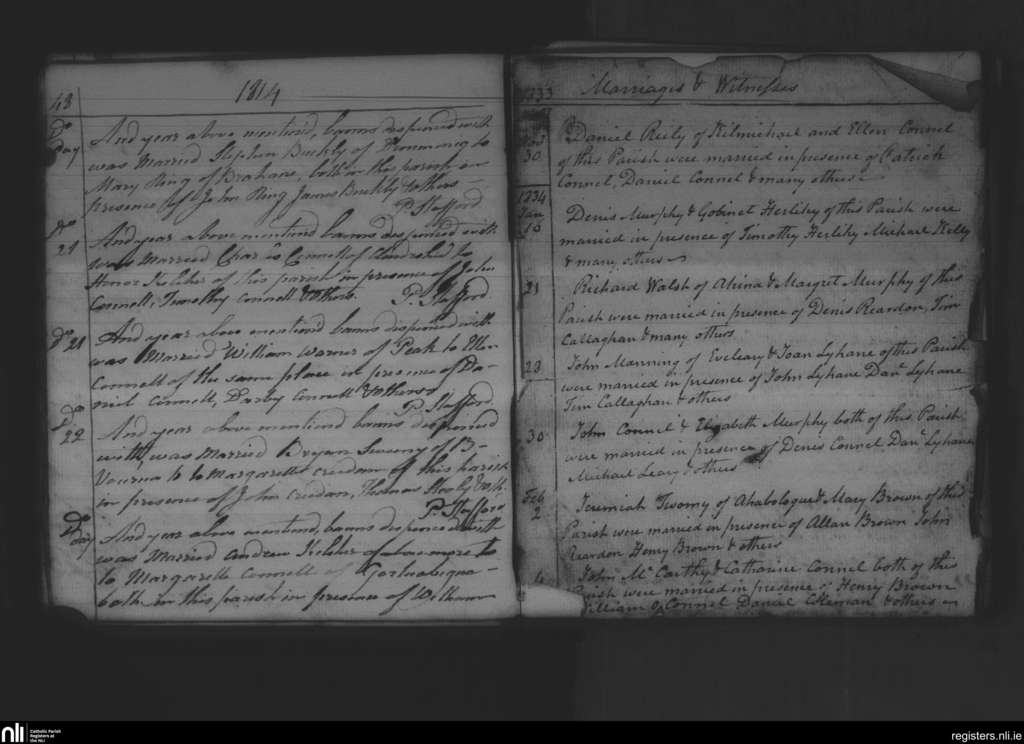 43
1814
Do
Day
And year above mentiond, banns dispenced with
was Married Stephen Buckly of to
Mary Ring of Brahane, both in the parish in
presence of John Ring James Buckly & others
P. Stafford
Do
21
And year above mentiond banns dispenced with
was Married Connell of to
Honor Keleher of this parish in presence of John
Connell, Timothy Connell & others. P. Stafford
Do 21
And year above mentiond banns dispenced with
was Married William Warner of Peak to Ellen
Connell of the same place in presence of Da-
niel Connell, Darby Connell & others
P. Stafford
Do
22
And year above mentiond banns dispenced
with, was Married Bryan Sweeny of B-
Vourna to to Margarett Creedan of this parish
in presence of John Creedan, Thomas
P. Stafford
Do
day
And year above mentiond, banns dispenced with
was Married Andrew Keleher of to
to Margarett Connell of
both in this parish in presence of William
1833
Marriages & Witnesses
Novr
30
Daniel Reily of Kilmichael and Ellen Connel
of this Parish were married in presence of Patrick
Connel, Daniel Connel & many others
1834
Jan
10
Denis Murphy & Gobinet Herlihy of this Parish were
married in presence of Timothy Herlihy Michael Kelly
& many others
21
Richard Walsh of Ahina & Margret Murphy of this
Parish were married in presence of Denis Reardon, Tim
Callaghan & many others
23
John Manning of Eveleary & Joan Lyhane of this Parish
were married in presence of John Lyhane Danl Lyhane
Tim Callaghan & others
30
John Connel & Elizabeth Murphy both of this Parish
were married in presence of Denis Connel Danl Lyhane
Michael Leary & others
Feb
2
Jeremiah Twomy of Ahabologue & Mary Brown of this
Parish were married in presence of Allan Brown John
Reardon Henry Brown & others
4
John McCarthy & Catharine Connel both of this
Parish were married in presence of Henry Brown
William O Connel Daniel Coleman & others
nli
Catholic Parish
Registers at
the NLI
registers.nli.ie